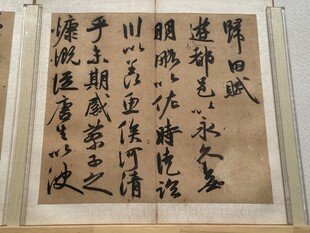 歸田賦
遊都邑以永久無
明略以佐時徒臨
川以羨魚俟河清
乎未期感蔡子之
慷慨從唐生以決